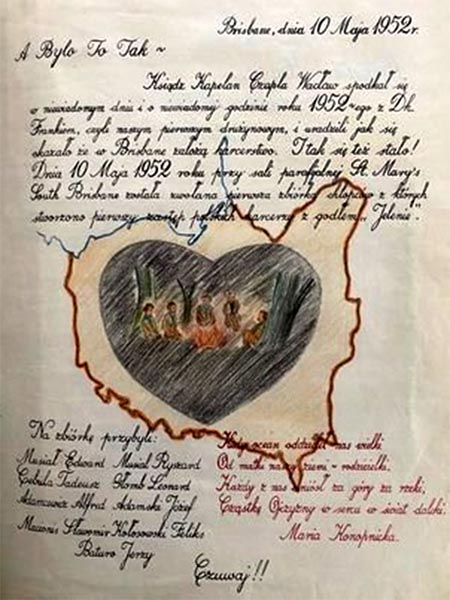 Brisbane, dnia 10 Maja 1952r.
A Bylo To Tak ~
Ksiądz Kapelan Czapla Wacław spotkał się
w niewiadomym dniu i o niewiadomej godzinie roku 1952-ego z Dh.
Frankiem, czyli naszym pierwszym drużynowym, i uradzili jak się
okazało że w Brisbane założą harcerstwo. I tak się też stało!
Dnia 10 Maja 1952 roku przy sali parafjalnej St. Mary's
South Brisbane została zwołana pierwsza zbiórka chłopców z których
stworzono pierwszy zastęp polskich harcerzy z godłem „Jelenie".
Na zbiórkę przybyli:
Musiał Edward Musiał Ryszard
Cebula Tadeusz Leonard
Adamowicz Alfred Adamski Józef
Sławomir Kołosowski Feliks
Baturo Jerzy
Gdy ocean oddzielił nas wielki
Od matki naszej ziemi - rodzicielki,
Każdy z nas uniósł za góry za rzeki,
Cząstkę Ojczyzny w sercu w świat daleki.
Maria Konopnicka.
Czuwaj!!